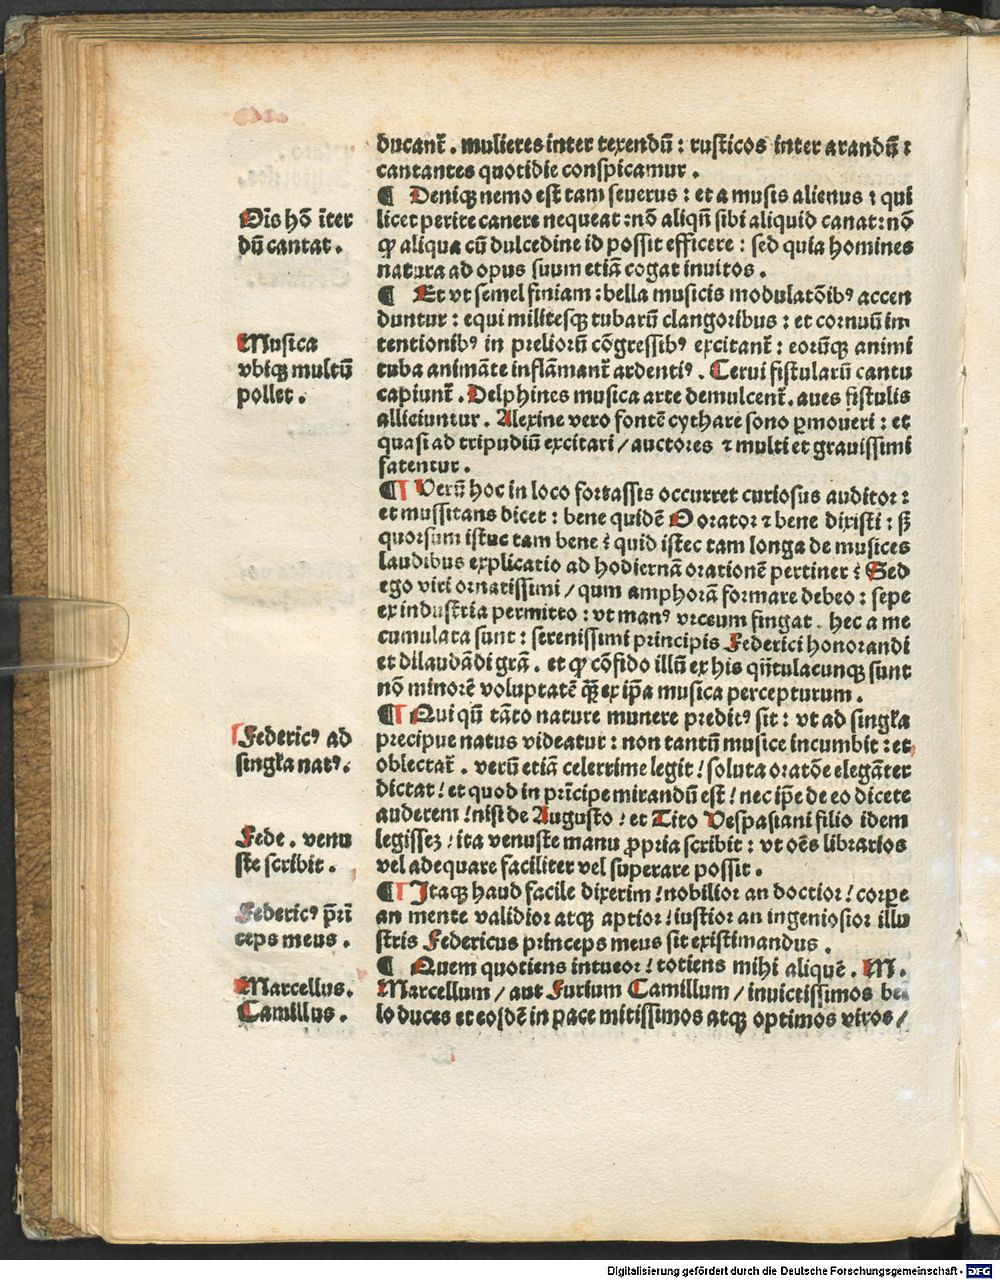 ducanť. mulieres inter texendū: rusticos inter arandū:
cantantes quotidie conspicamur.
¶ Deniqꝫ nemo est tam seuerus: et a musis alienus: qui
licet perite canere nequeat: nō aliqn̄ sibi aliquid canat: nō
ꝙ aliqua cū dulcedine id possit efficere: sed quia homines
natura ad opus suum etiā cogat inuitos.
Oīs hō iter
dū cantat.
¶ Et vt semel finiam: bella musicis modulatōibꝰ accen
duntur: equi militesqꝫ tubarū clangoribus: et cornuū in
tentionibꝰ in preliorū cōgressibꝰ excitanť: eorūqꝫ animi
tuba animāte inflāmanť ardentiꝰ. Cerui fistularū cantu
capiunť. Delphines musica arte demulcenť. aues fistulis
alliciuntur. Alexine vero fontē cythare sono ꝑmoueri: et
quasi ad tripudiū excitari / auctores ⁊ multi et grauissimi
fatentur.
Musica
vbiqꝫ multū
pollet.
¶ Verū hoc in loco fortassis occurret curiosus auditor:
et mussitans dicet: bene quidē O orator ⁊ bene dixisti: sꝫ
quorsum istuc tam bene? quid istec tam longa de musices
laudibus explicatio ad hodiernā orationē pertinet? Sed
ego viri ornatissimi / qum amphorā formare debeo: sepe
ex industria permitto: vt manꝰ vrceum fingat. hec a me
cumulata sunt: serenissimi principis Federici honorandi
et dilaudādi grā. et ꝙ cōfido illū ex his qn̄tulacunqꝫ sunt
nō minorē voluptatē qꝫ̄ ex ip̄a musica percepturum.
¶ Qui qū tāto nature munere preditꝰ sit: vt ad singľa
precipue natus videatur: non tantū musice incumbit: et
oblectať. verū etiā celerrime legit! soluta oratōe elegāter
dictat! et quod in prīcipe mirandū est! nec ip̄e de eo dicere
auderem! nisi de Augusto! et Tito Vespasiani filio idem
legissem! ita venuste manu ꝓpria scribit: vt oēs librarios
vel adequare faciliter vel superare possit.
Federicꝰ ad
singľa natꝰ.
Fede. venu
ste scribit.
¶ Itaqꝫ haud facile dixerim! nobilior an doctior! corꝑe
an mente validior atqꝫ aptior! iustior an ingeniosior illu
stris Federicus princeps meus sit existimandus.
Federicꝰ prī
ceps meus.
¶ Quem quotiens intueor! totiens mihi aliquē. M.
Marcellum / aut Furium Camillum / inuictissimos bel
lo duces et eosdē in pace mitissimos atqꝫ optimos viros /
Marcellus.
Camillus.
Digitalisierung gefördert durch die Deutsche Forschungsgemeinschaft - DFG